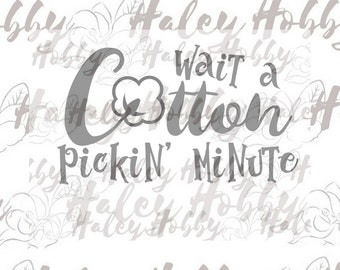 Haley Hobby
Haley Hobby
Wait a
Cotton
Pickin' Minute
Haley Hobby
Haley Hobby
Haley Hobby
Haley Hobby